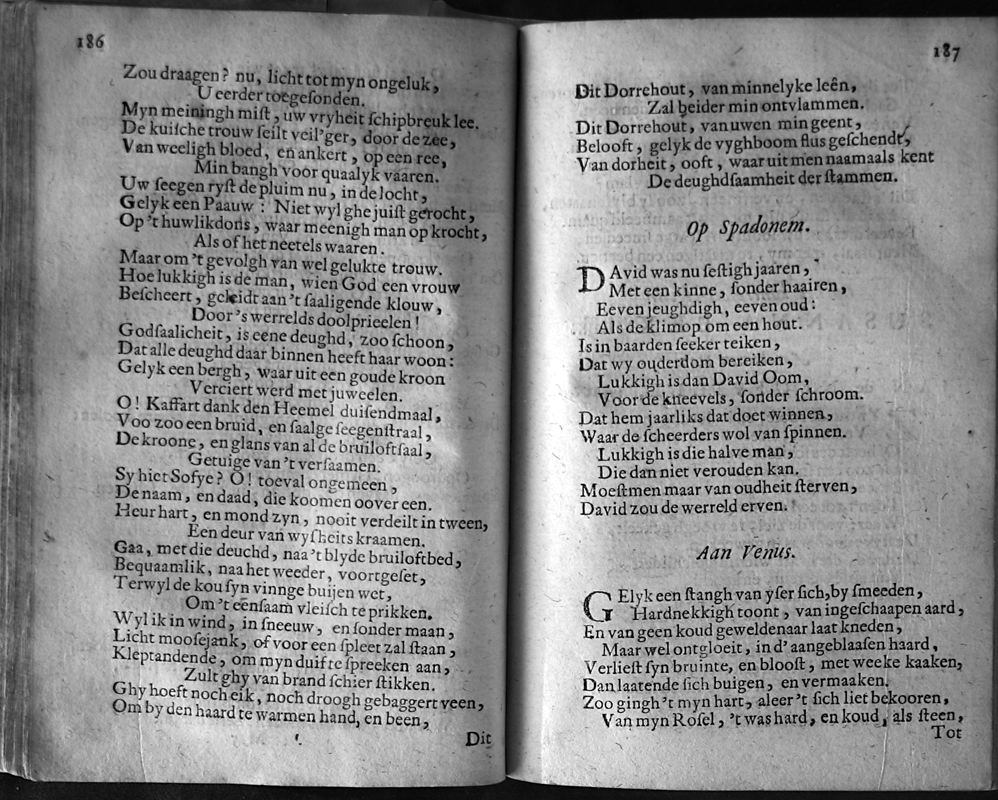 186
Zou draagen? nu, licht tot myn ongeluk,
U eerder toegeſonden.
Myn meiningh miſt, uw vryheit ſchipbreuk lee.
De kuiſche trouw ſeilt veil'ger, door de zee,
Van weeligh bloed, en ankert, op een ree,
Min bangh voor quaalyk vaaren.
Uw ſeegen ryſt de pluim nu, in de locht,
Gelyk een Paauw: Niet wyl ghe juiſt gerocht,
Op 't huwlikdons, waar meenigh man op krocht,
Als of het neetels waaren.
Maar om 't gevolgh van wel gelukte trouw.
Hoe lukkigh is de man, wien God een vrouw
Beſcheert, geleidt aan 't ſaaligende klouw,
Door 's werrelds doolprieelen!
Godſaalicheit, is eene deughd, zoo ſchoon,
Dat alle deughd daar binnen heeft haar woon:
Gelyk een bergh, waar uit een goude kroon
Verciert werd met juweelen.
O! Kaffart dank den Heemel duiſendmaal,
Voo zoo een bruid, en ſaalge ſeegenſtraal,
De kroone, en glans van al de bruiloftſaal,
Getuige van 't verſaamen.
Sy hiet Sofye? O! toeval ongemeen,
De naam, en daad, die koomen oover een.
Heur hart, en mond zyn, nooit verdeilt in tween,
Een deur van wyſheits kraamen.
Gaa, met die deuchd, naa 't blyde bruiloftbed,
Bequaamlik, naa het weeder, voortgeſet,
Terwyl de kou ſyn vinnge buijen wet,
Om 't eenſaam vleiſch te prikken.
Wyl ik in wind, in ſneeuw, en ſonder maan,
Licht mooſejank, of voor een ſpleet zal ſtaan,
Kleptandende, om myn duifte ſpreeken aan,
Zult ghy van brand ſchier ſtikken.
Ghy hoeft noch eik, noch droogh gebaggert veen,
Om by den haard te warmen hand, en been,
Dit
187
Dit Dorrehout, van minnelyke leên,
Zal beider min ontvlammen.
Dit Dorrehout, van uwen min geent,
Belooft, gelyk de vyghboom flus geſchendt,
Van dorheit, ooft, waar uit men naamaals kent
De deughdſaamheit der ſtammen.
Op Spadonem.
DAvid was nu ſeſtigh jaaren,
Met een kinne, ſonder haairen,
Eeven jeughdigh, eeven oud:
Als de klimop om een hout.
Is in baarden ſeeker teiken,
Dat wy ouderdom bereiken,
Lukkigh is dan David Oom,
Voor de kneevels, ſonder ſchroom.
Dat hem jaarliks dat doet winnen,
Waar de ſcheerders wol van ſpinnen.
Lukkigh is die halve man,
Die dan niet verouden kan.
Moeſtmen maar van oudheit ſterven,
David zou de werreld erven.
Aan Venus.
GElyk een ſtangh van yſer ſich, by ſmeeden,
Hardnekkigh toont, van ingeſchaapen aard,
En van geen koud geweldenaar laat kneden,
Maar wel ontgloeit, in d' aangeblaaſen haard,
Verlieſt ſyn bruinte, en blooſt, met weeke kaaken,
Dan laatende ſich buigen, en vermaaken.
Zoo gingh 't myn hart, aleer 't ſich liet bekooren,
Van myn Roſel, 't was hard, en koud, als ſteen,
Tot